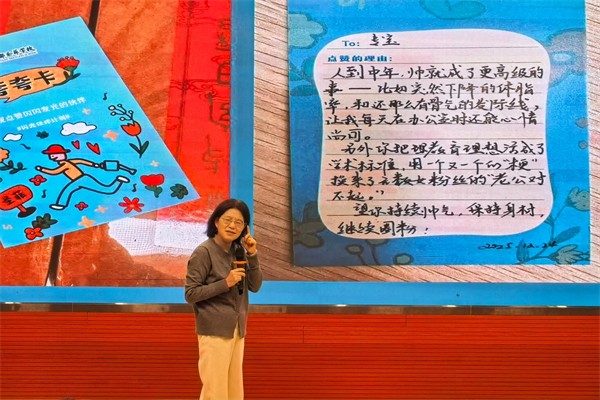 夸夸卡
To: 专宝
点赞的理由:
人到中年,帅就成了更高级的
事——比如突然下降的体脂
率,和还那么有骨气的发际线,
让我每天在办公室时还能心情
尚可。
另外你把理想活成了
学术标准,用一个又一个的“梗”
换来了无数女粉丝的“老公对
不起。”
望你持续帅气,保持身材,
继续圈粉!
2025.12.24
幸福